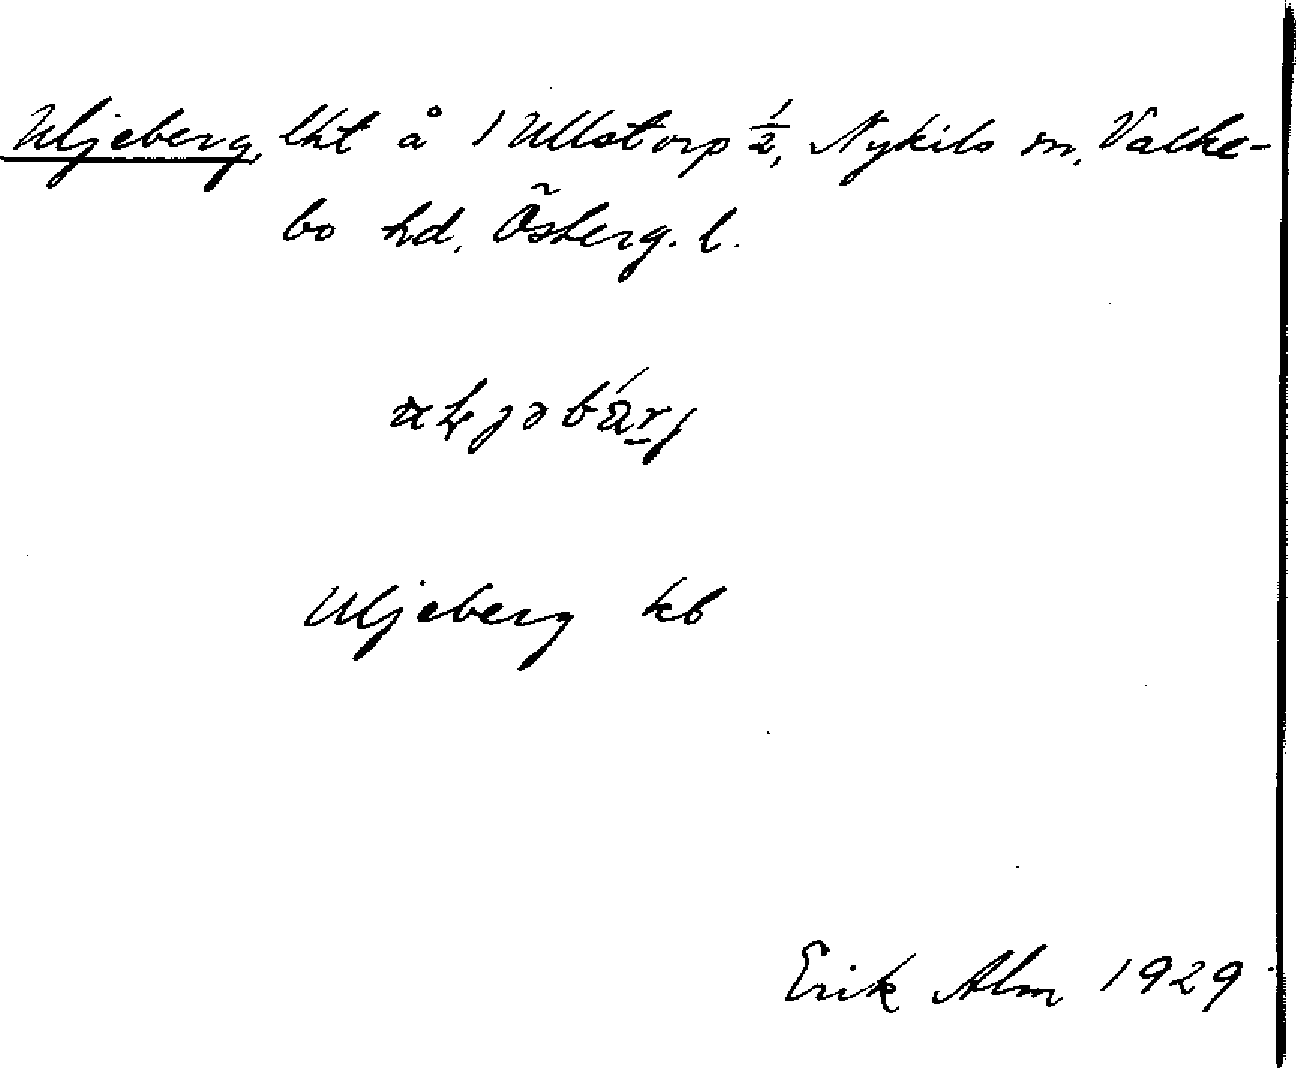 Uljeberg, lht å 1 Ullstorp ½, Nykils sn, Valke-
bo hd, Österg. l.
Uljeberg kb
Erik Alm 1929